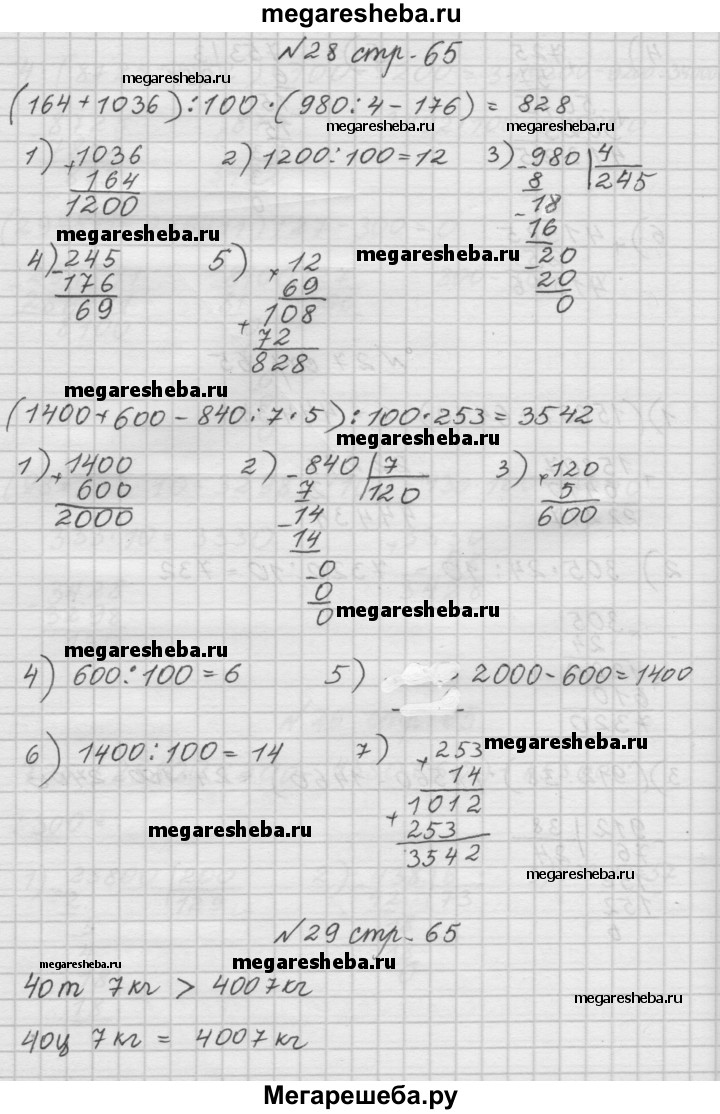 megaresheba.ru
№28 стр. 65
megaresheba.ru
(164+1036):100·(980:4-176) = 828
megaresheba.ru megaresheba.ru
1) +1036 2) 1200:100=12 3) -980 |4
164 8 245
1200 -18
16
megaresheba.ru megaresheba.ru
4) -245 5) ×12 -20
176 69 20
69 +108 0
72
828
megaresheba.ru
(1400+600-840:7·5):100·253=3542
megaresheba.ru
1) +1400 2) -840 |7 3) ×120
600 7 120 5
2000 -14 600
14
-0
0
0 megaresheba.ru
megaresheba.ru
4) 600:100=6 5) 2000-600=1400
6) 1400:100=14 7) ×253 megaresheba.ru
14
+1012
megaresheba.ru 253
3542
megaresheba.ru
№29 стр. 65
megaresheba.ru megaresheba.ru
40т 7кг > 4007кг
megaresheba.ru
40ц 7кг = 4007кг
Мегарешеба.ру